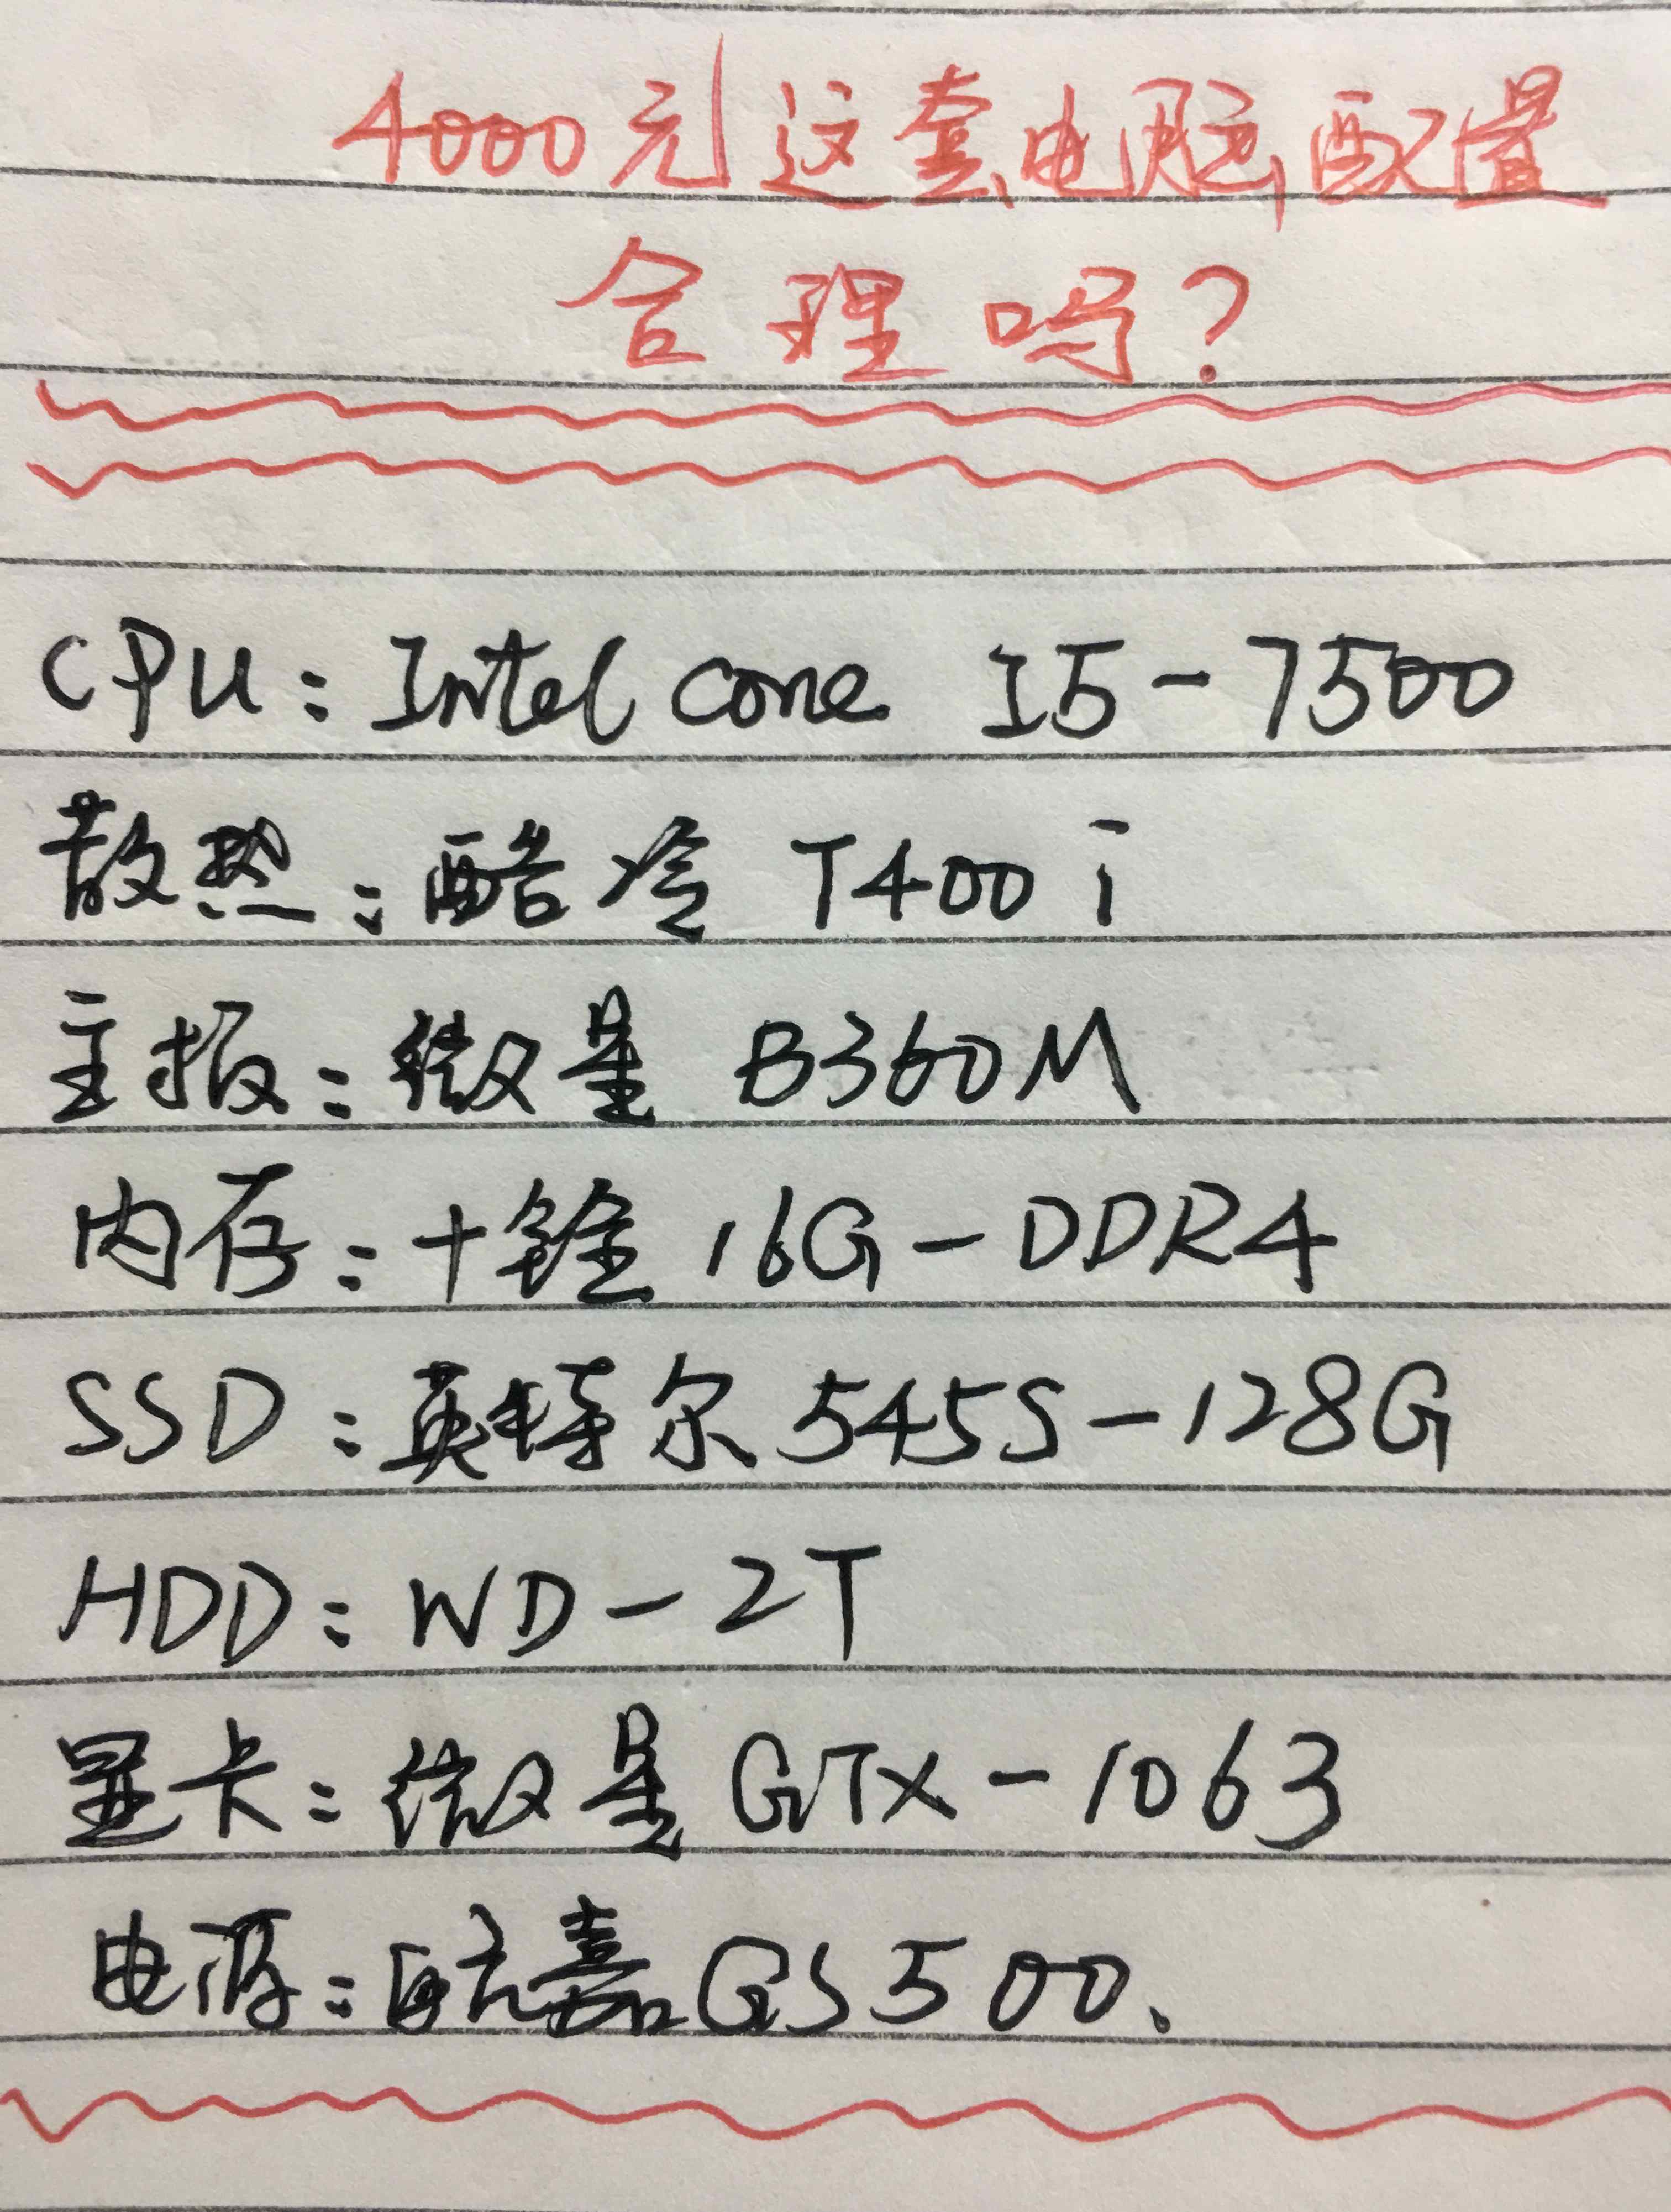 4000元这套电脑配置
合理吗？
CPU：Intel core I5-7500
散热：酷冷 T400i
主板：微星 B360M
内存：十铨 16G-DDR4
SSD：英特尔 545S-128G
HDD：WD-2T
显卡：微星 GTX-1063
电源：航嘉 GS500、